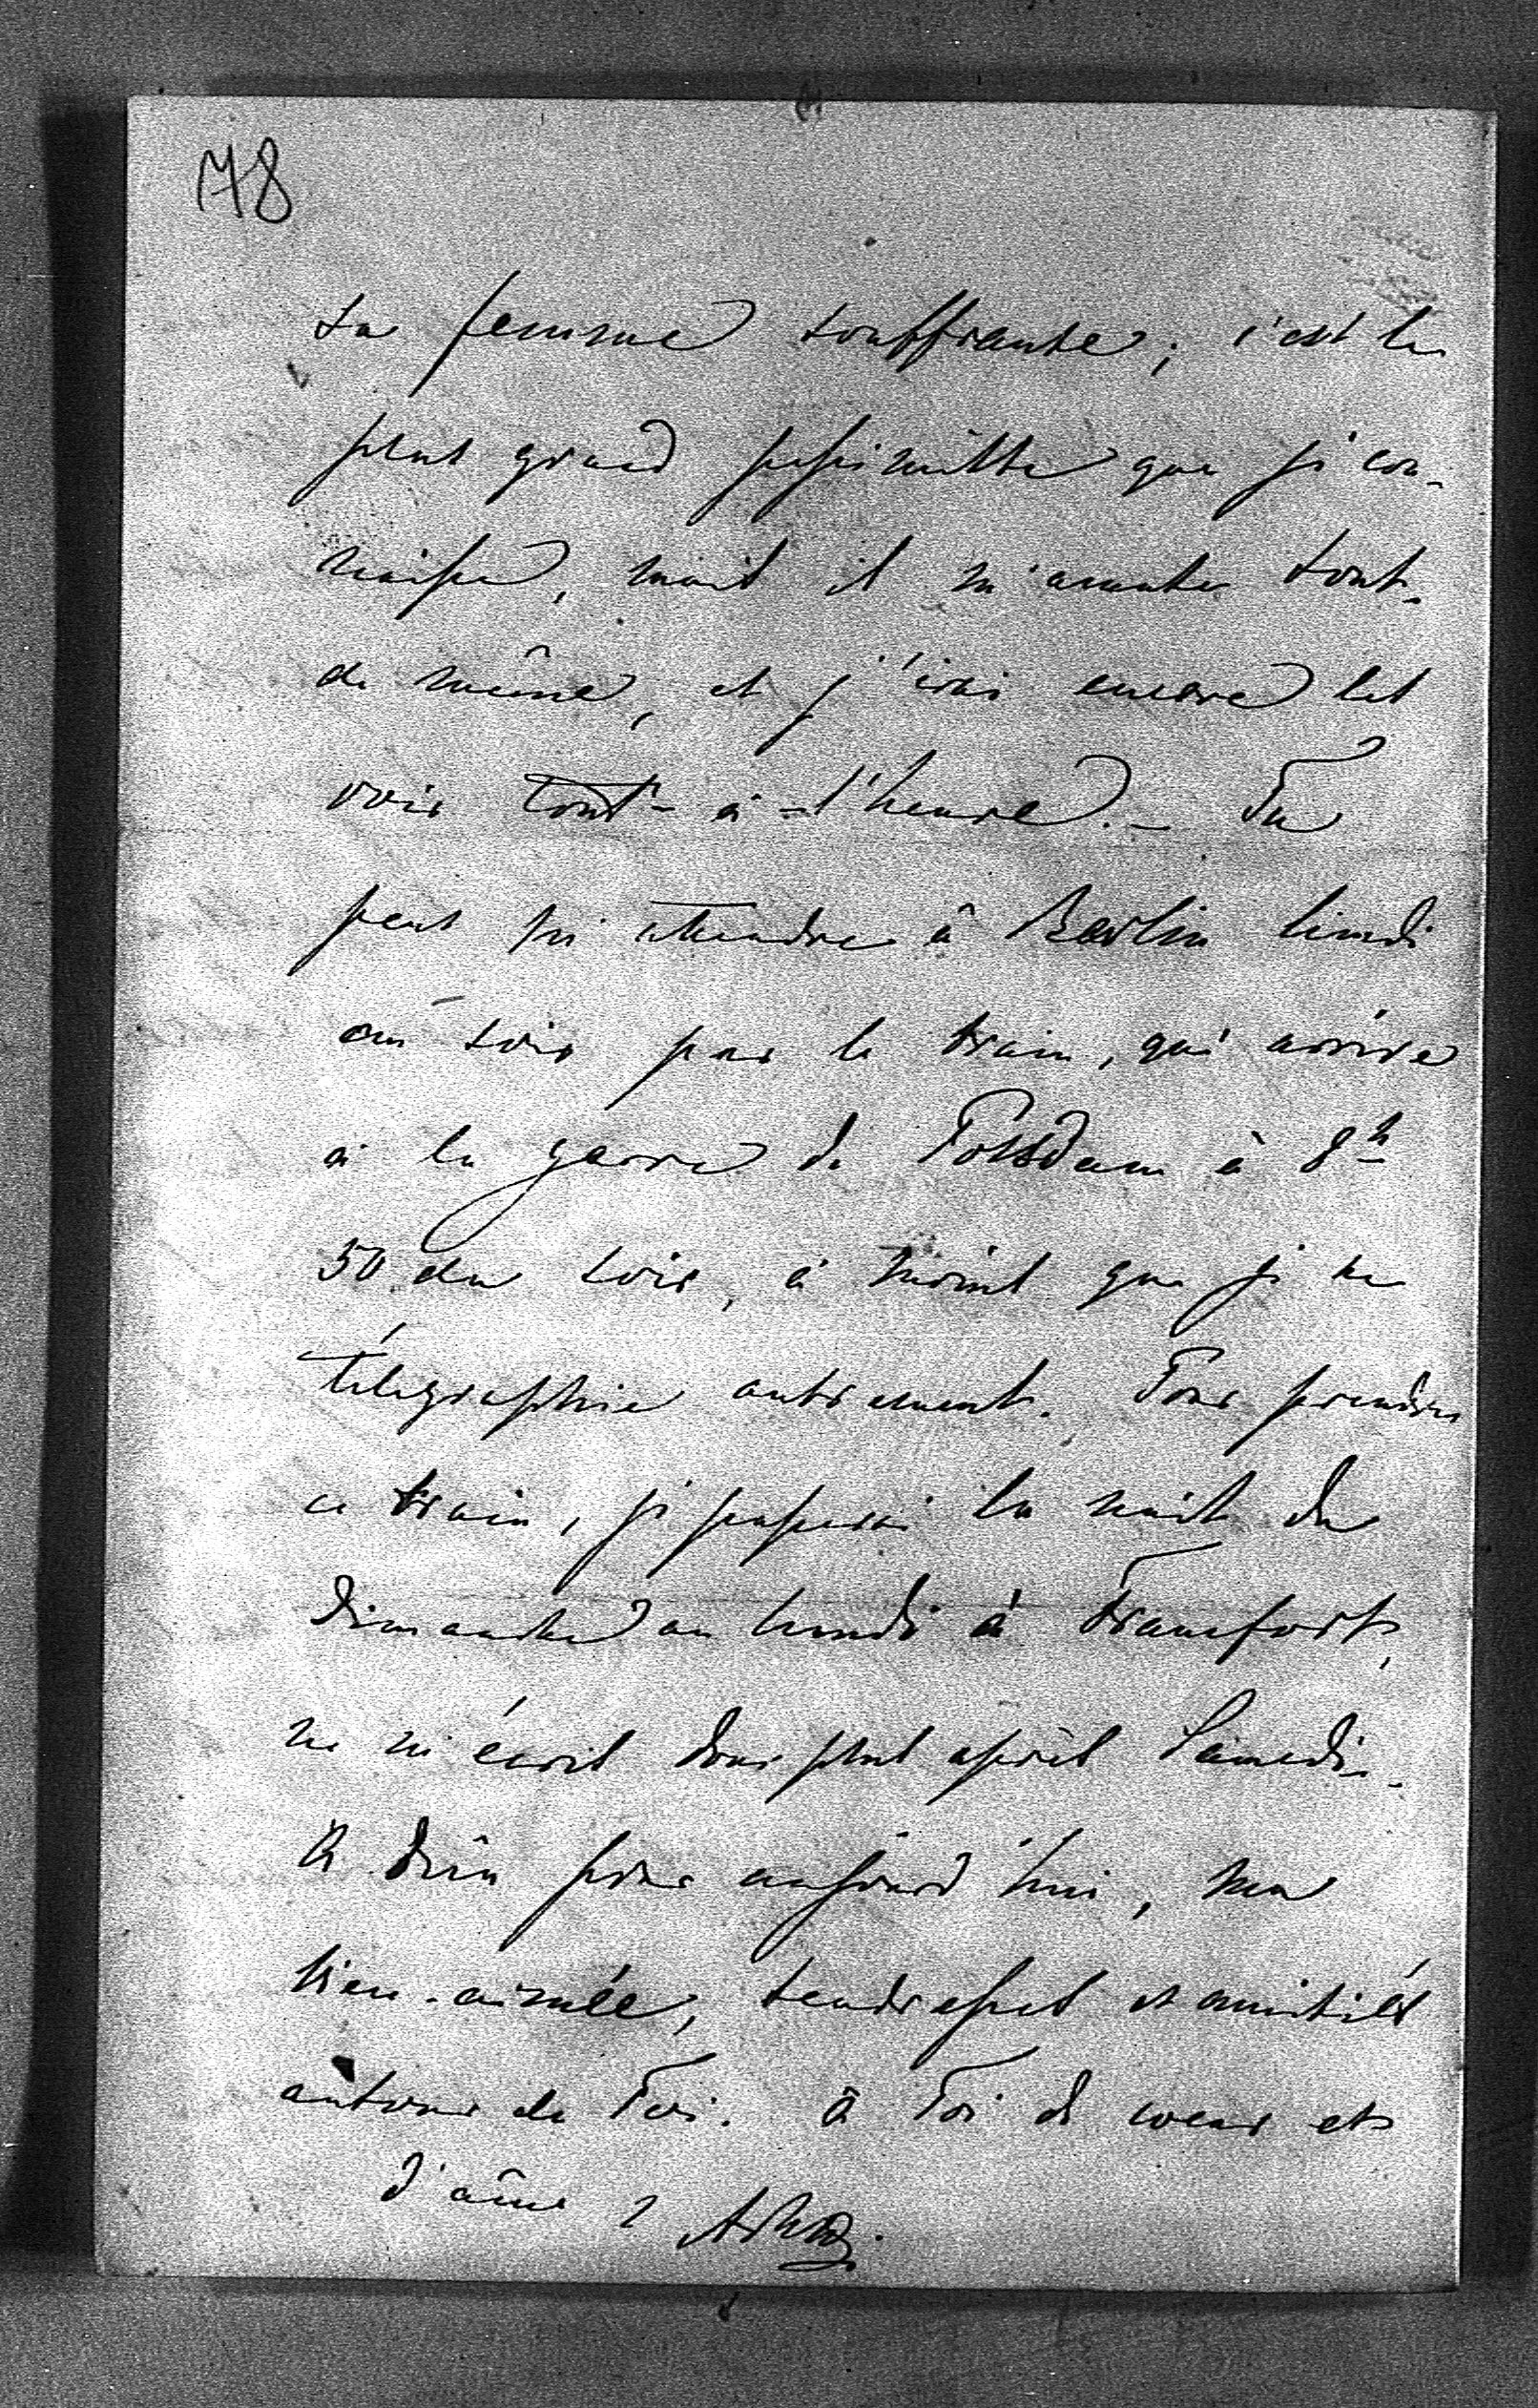 78
sa femme souffrante; c'est le
plus grand pessimiste que je con-
naisse, mais il m'amuse tout-
de même, et j'irai encore les
voir tout-à-l'heure. - Tu
peus m'attendre à Berlin lundi
au soir par le train, qui arrive
à la garre de Potsdam à 8h
50 du soir, à moins que je ne
télégraphie autrement. Pour prendre
ce train, je passerai la nuit du
Dimanche au lundi à Francfort,
ne m'écris donc plus après Samedi.
A Dieu pour aujourd'hui, ma
bien-aimée, tendresses et amitiés
autour de Toi. à Toi de coeur et
d'âme